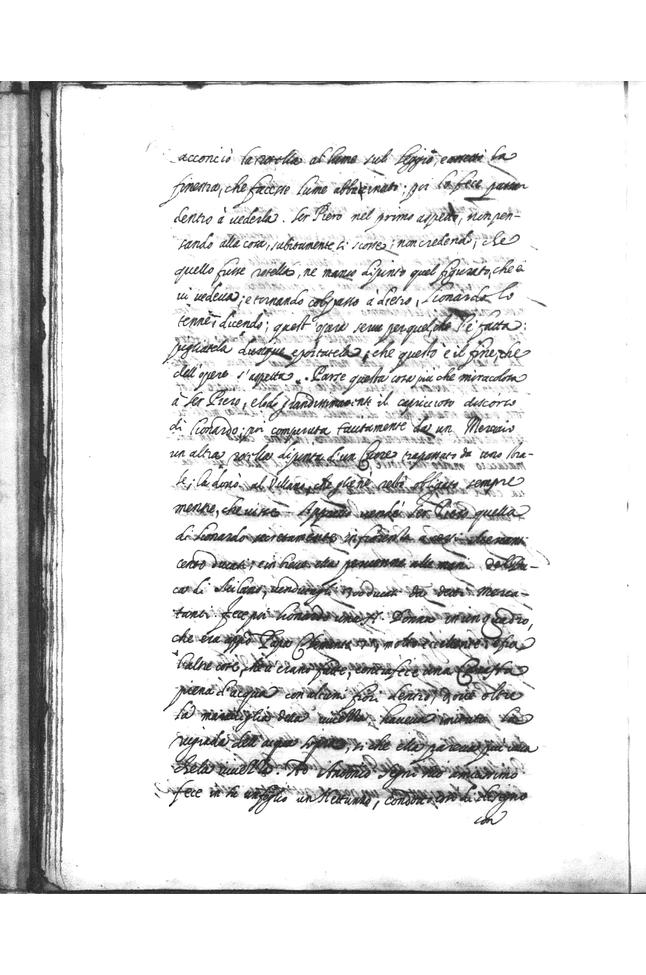 acconciò la rotella al lume sul leggio, e
finestra, che facesse lume abbacinato; poi lo fece passar
dentro à vederla. Ser Piero nel primo aspetto, non pen-
sando alla cosa, subitamente si scosse; non credendo, che
quello fusse rotella, ne manco dipinto quel figurato, che è
vi vedeva; e tornando col passo à dietro, Lionardo lo
tenne; dicendo; quest' opera serve per quel, che l'è fatta:
pigliatela dunque e portatela, che questo è il fine, che
dell'opere s'aspetta. Parse questa cosa più che miracolosa
à Ser Piero, e lodò grandissimamente il capriccioso discorso
di Lionardo; poi comperata tacitamente da un Merciaio
un altra rotella dipinta d'un Cuore trapassato da uno stra-
le; la donò al Villano, che gliene restò obligato sempre
mentre, che visse. Appresso vendè Ser Piero quella
di Lionardo secretamente in Fiorenza à
cento ducati; e in breve ella pervenne alle mani del Du-
ca di Milano, vendutagli 300 ducati da detti Merca-
tanti. Fece poi Lionardo una N. Donna in un quadro,
che era appò Papa Clemente VII, molto eccellente; e fra
l'altre cose, che v'erano fatte, contrafece una Caraffa
piena d'acqua con alcuni fiori dentro, dove oltre
la maraviglia della vivezza, haveva imitato la
rugiada dell'acqua sopra, sì che ella pareva più viva
che la vivezza. Ad Antonio Segni suo amicissimo
fece in su un foglio un Nettunno, condotto così di disegno
con